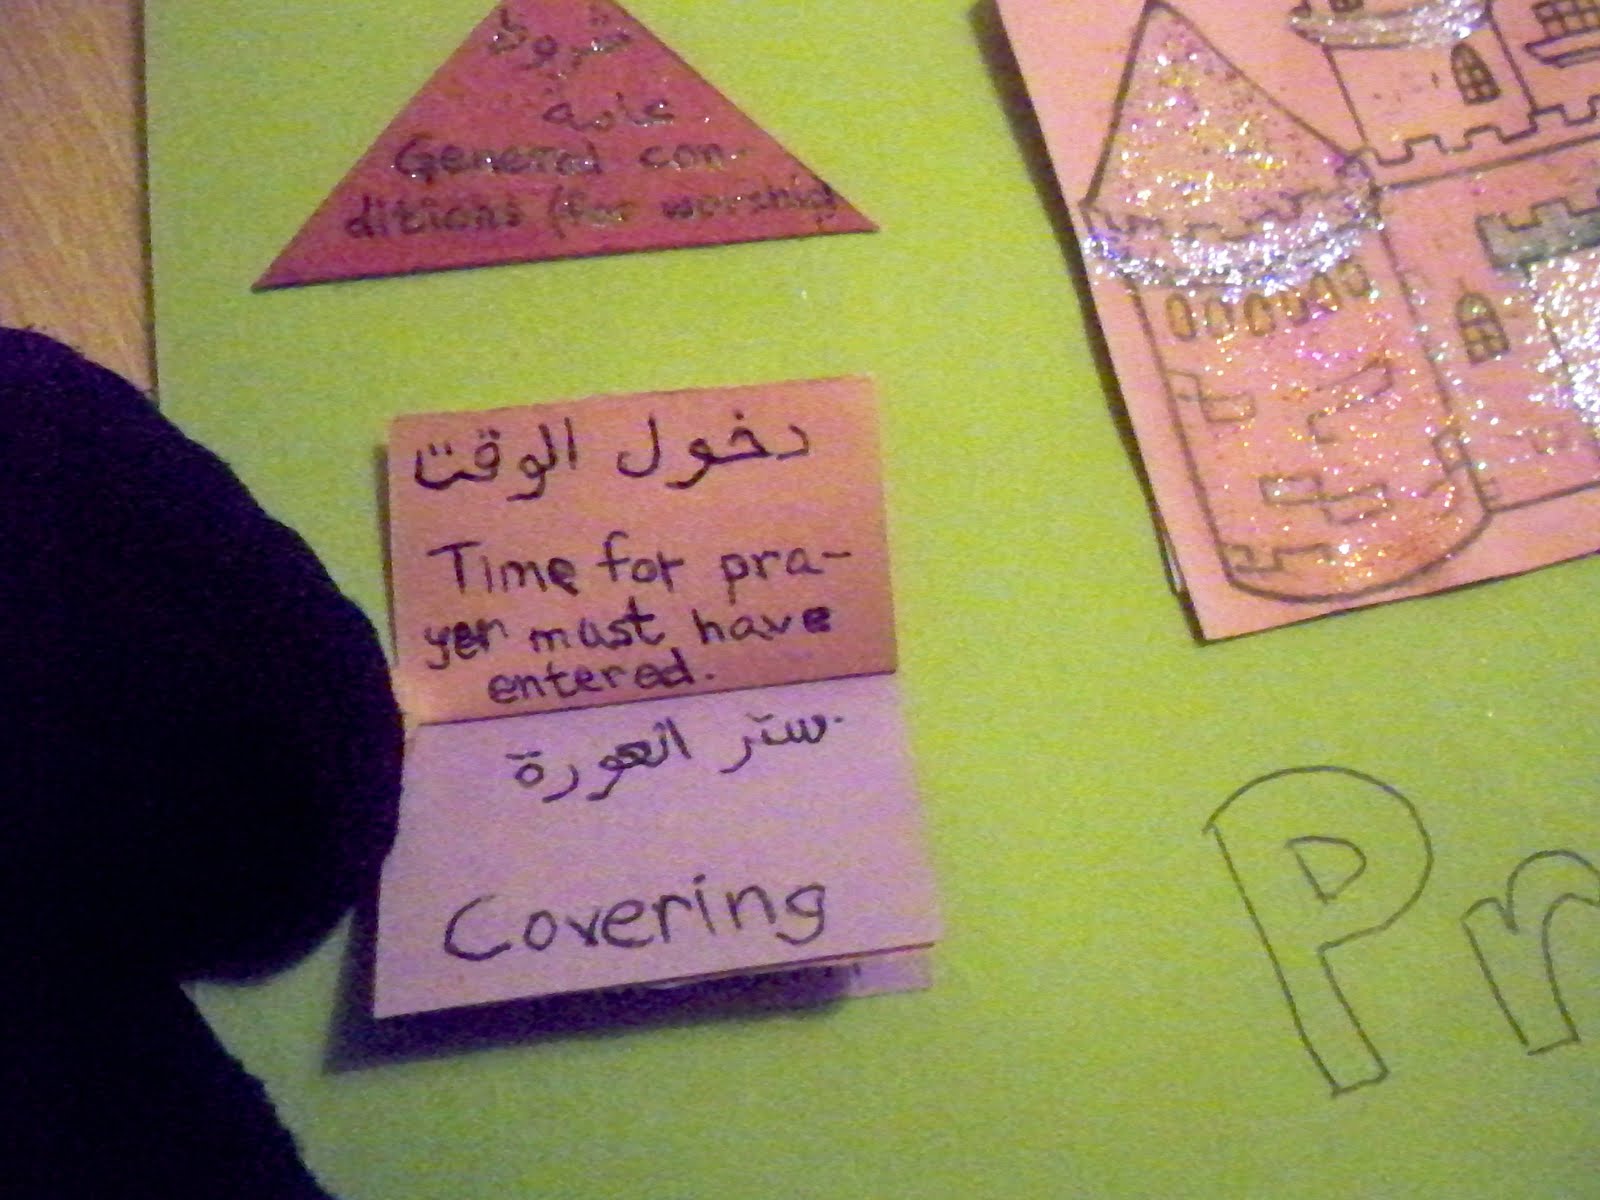 شروط
عامة
General con-
ditions (for worship)
دخول الوقت
Time for pra-
yer must have
entered.
ستر العورة
Covering
Pr